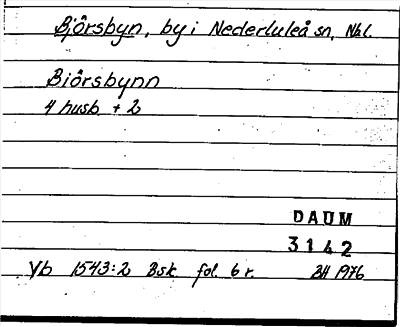 Björsbyn, by i Nederluleå sn, Nbl.
Biörsbynn
4 husb + 2
DAUM
3142
Vb 1543:2 Bsk fol. 6 r. BH 1976